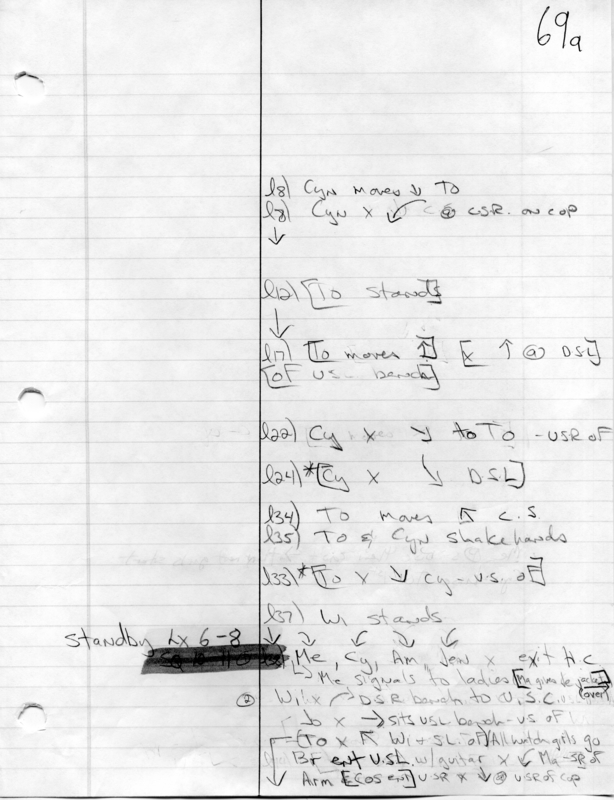 69a
l8) Cyn moves ↓ To
l8) Cyn x ↙ @ CSR. on cop
↓
l12) [To stands]
↓
l17) [To moves ↑] [x ↑ @ DSL]
[of US bench]
l22) Cy x ↘ to To - USR OF
l24)*[Cy x ↘ DSL]
l34) To moves ↖ C.S.
l35) To & Cyn shake hands
l33)*[To x ↘ Cy - U.S. of]
l37) Wi stands
standby Lx 6-8 ↓ ↘ ↓ ↘ ↙
Me, Cy, Am, Jen x exit H.C
↳ Me signals to ladies [Ma gima de jacket]
(over)
Wi x → DSR bench to U.S.C.
Jo x → sits USL bench - US OF
[To x ↖ Wi + SL. of] / All watch girls go
Br ent U.SL. w/guitar x ↙ Ma - SR of
↓ Arm [Cos ent] USR x ↓ @ USR of cop